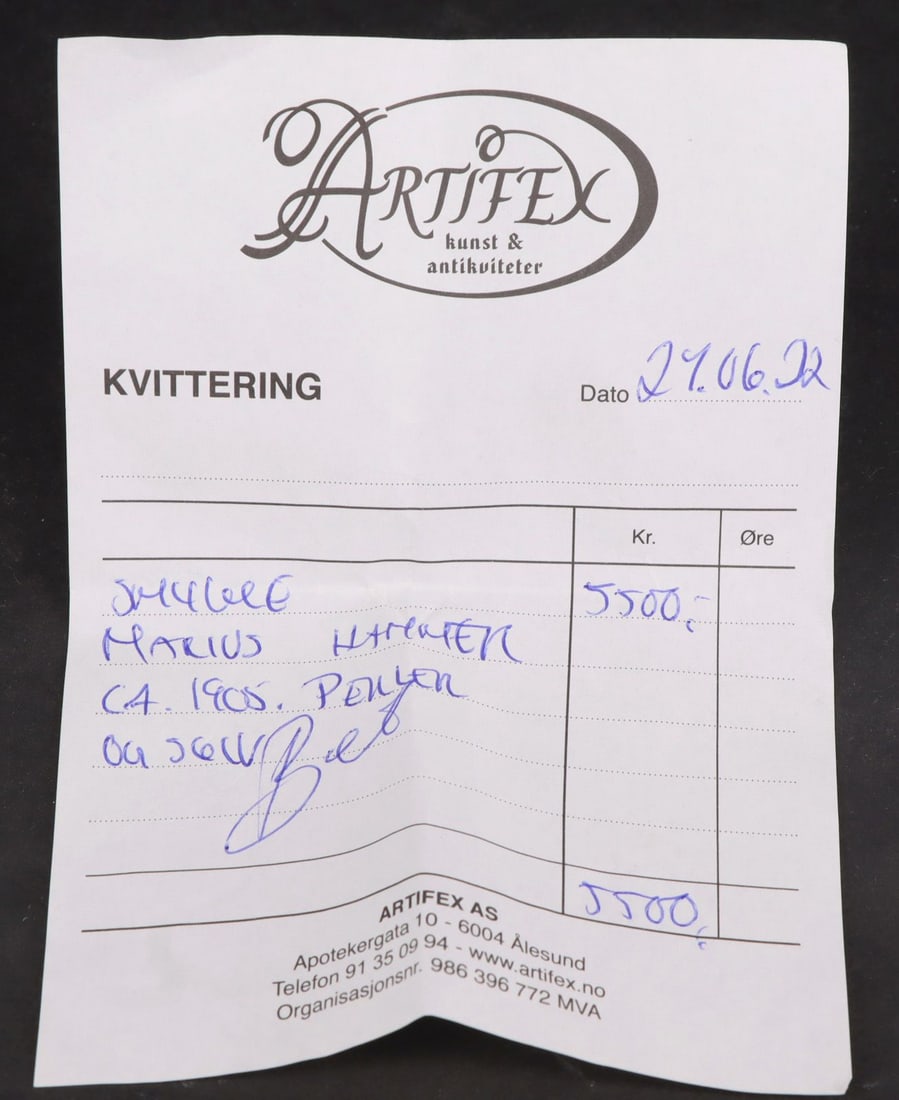 ARTIFEX
kunst &
antikviteter
KVITTERING
Dato 27.06.22
Kr. Øre
SMYKKE 5500,-
MARIUS HAMMER
CA. 1905. PERLER
OG SØLV
5500,-
ARTIFEX AS
Apotekergata 10 - 6004 Ålesund
Telefon 91 35 09 94 - www.artifex.no
Organisasjonsnr. 986 396 772 MVA